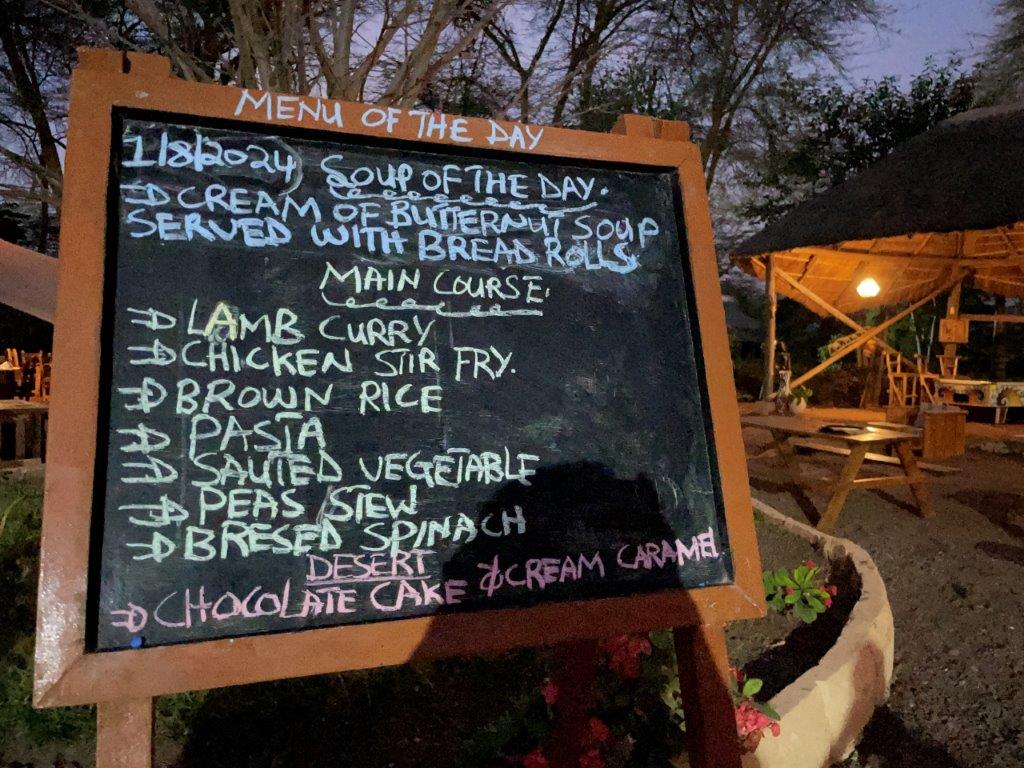 MENU OF THE DAY
1/8/2024 SOUP OF THE DAY.
⇒ CREAM OF BUTTERNUT SOUP
SERVED WITH BREAD ROLLS
MAIN COURSE.
⇒ LAMB CURRY
⇒ CHICKEN STIR FRY.
⇒ BROWN RICE
⇒ PASTA
⇒ SAUTED VEGETABLE
⇒ PEAS STEW
⇒ BRESED SPINACH
DESERT
⇒ CHOCOLATE CAKE & CREAM CARAMEL